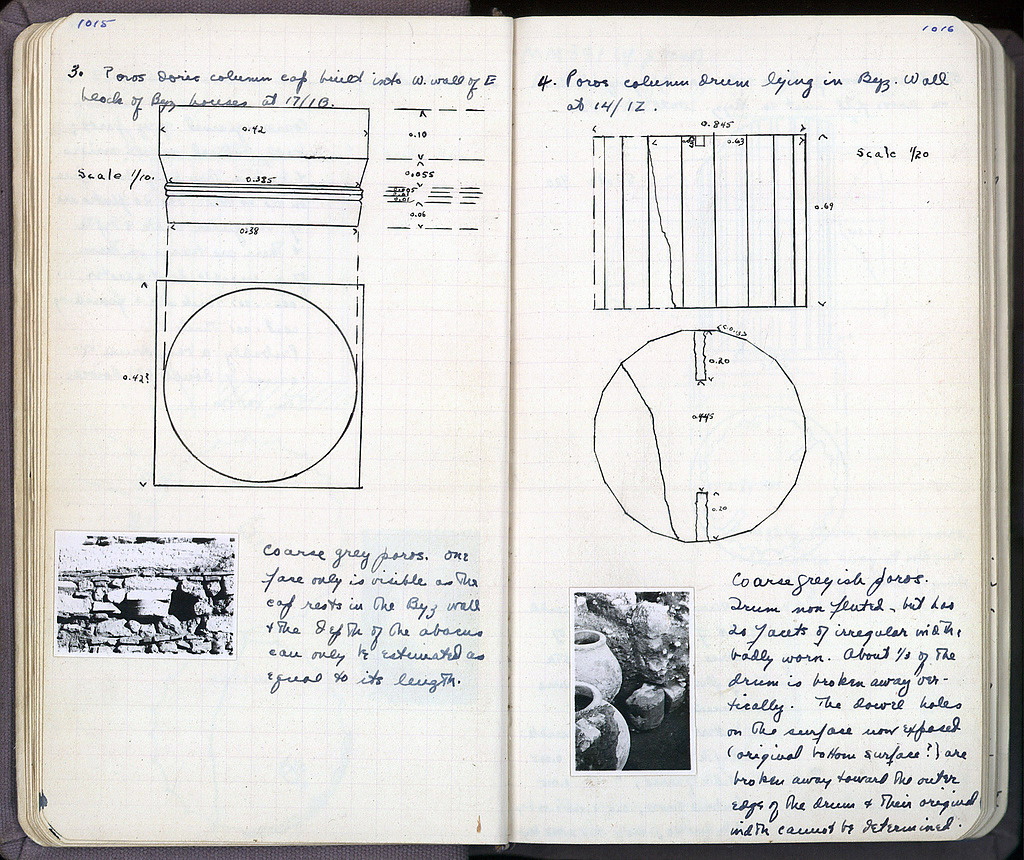 1015
3. Poros Doric column cap build into W. wall of E
block of Byz houses at 17/1B.
0.42
0.10
Scale 1/10.
0.055
0.385
0.005
0.01
0.01
0.06
0.38
0.42?
Coarse grey poros. One
face only is visible as the
cap rests in the Byz wall
& the depth of the abacus
can only be estimated as
equal to its length.
1016
4. Poros column drum lying in Byz. Wall
at 14/1Z.
0.845
0.63
Scale 1/20
0.69
0.20
0.445
0.20
Coarse greyish poros.
Drum non fluted - but has
20 facets of irregular width,
badly worn. About 1/3 of the
drum is broken away ver-
tically. The dowel holes
on the surface now exposed
(original bottom surface?) are
broken away toward the outer
edge of the drum & their original
width cannot be determined.